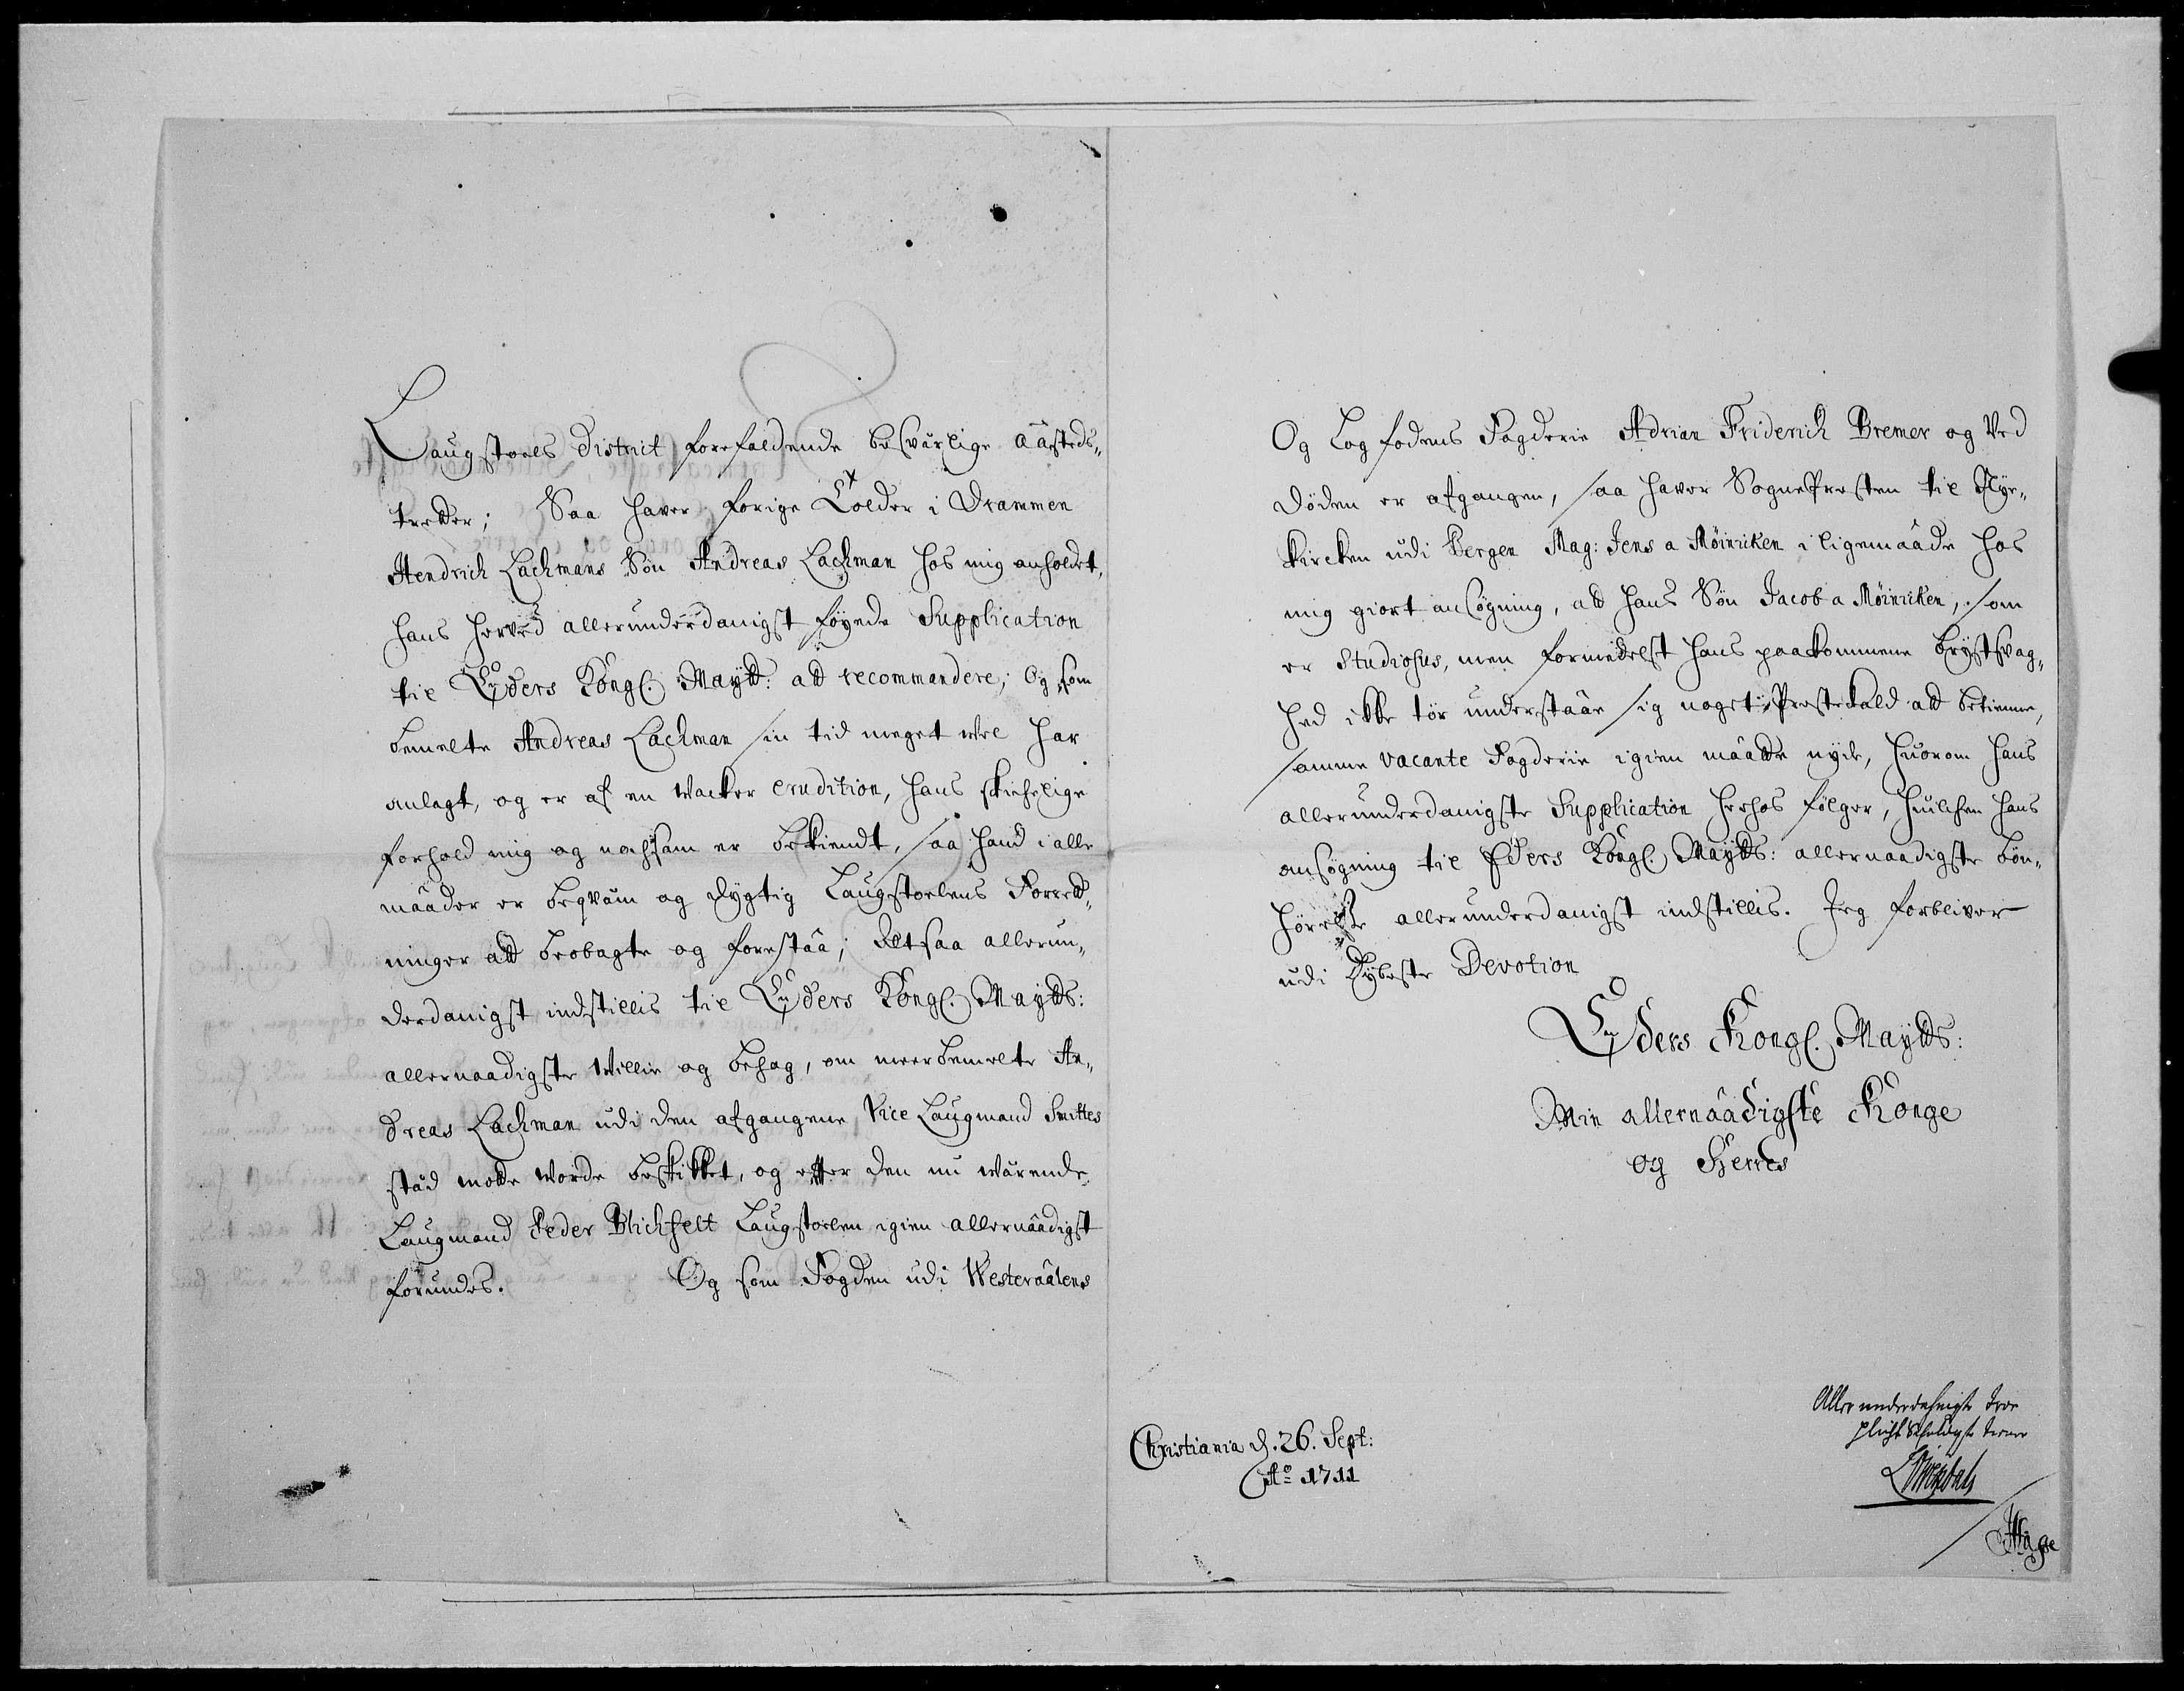 Laugstoels District forefaldende besværlige aâsteds„
tretter; Saa haver forige Tolder i Drammen
Hendrich Lachmans Søn Andreas Lachman hos mig anholdt,
hans herved allerunderdanigst føyede Supplication
til Eyders Kongl. Maytt: att recommendere; Og som
bemelte Andreas Lachman sin tid meget vel har
anlagt, og er af en wacker erudition, hans skichelige
forhold mig og nochsam er bekiendt, saa hand i alle
maader er beqvâm og dygtig Laugstoelens Forrett„
ninger att beobagte og forestaa; Altsaa allerun„
derdanigst indstillis til Eyders Kongl. Maytts:
allernaadigste Willie og behag, om meerbemelte An„
dreas Lachman udi den afgangene Vice Laugmand Smittes
stâd motte worde beskikket, og efter den nu wærende
Laugmand Peder Blichfelt Laugstoelen igien allernâadigst
forundes. Og som Fogden udi Westeraâlens
Og Lofodens Fogderie Adrian Friderich Bremer og Ved
døden er afgangen, saa haver SognePresten til Nye„
kircken udi Bergen Mag: Jens a Møinicken i ligemaâde hos
mig giort ansøgning, att hans Søn Jacob a Møinicken, som
er Studiosus, men formedelst hans paakommene brystsvag„
hed ikke tør understaâe sig noget Prestekald att betienne,
samme vacante Fogderie igien mâatte nyde, huorom hans
allerunderdanigste Supplication herhos følger, huilchen hans
ansøgning til Eders Kongl. Maytts: allernaadigste bøn„
hørelse allerunderdanigst indstillis. Jeg forbliver
udi dybeste Devotion
Eyders Kongl. Maytts:
Min allernâadigste Konge
og Herres
Christiania d. 26. Sept:
Ao 1711
Allerunderdahnigste troe
plicht schuldigste tiener